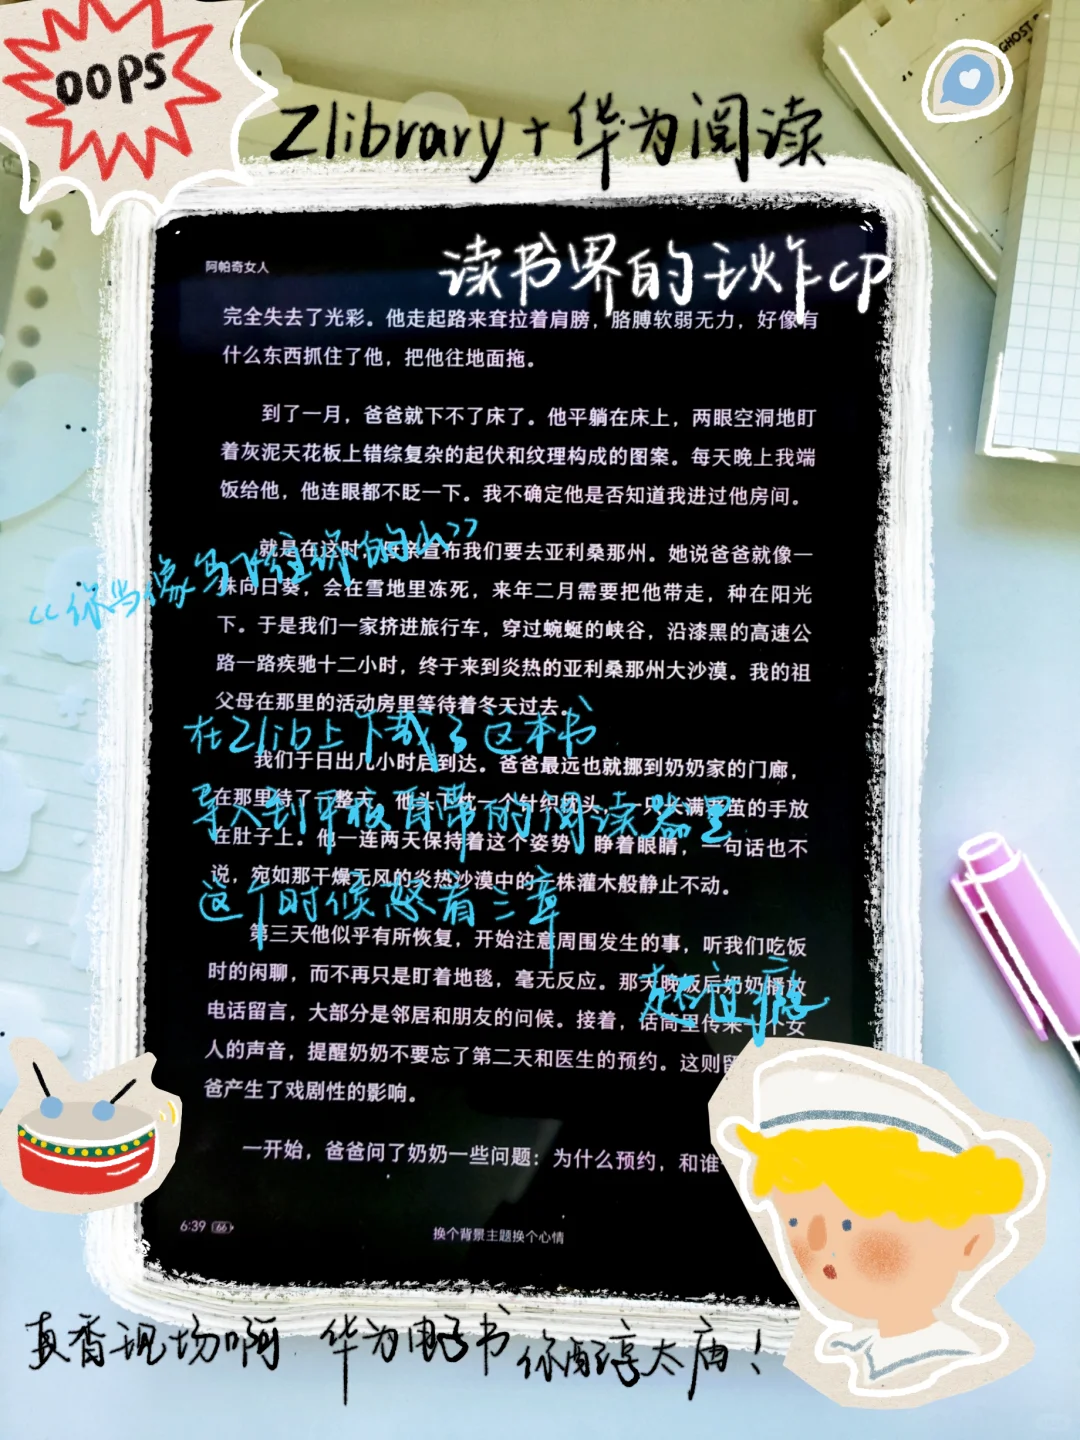 OOPS
GHOST
Zlibrary+华为阅读
读书界的王炸CP
阿帕奇女人
完全失去了光彩。他走起路来耷拉着肩膀，胳膊软弱无力，好像有
什么东西抓住了他，把他往地面拖。
到了一月，爸爸就下不了床了。他平躺在床上，两眼空洞地盯
着灰泥天花板上错综复杂的起伏和纹理构成的图案。每天晚上我端
饭给他，他连眼都不眨一下。我不确定他是否知道我进过他房间。
就是在这时，母亲宣布我们要去亚利桑那州。她说爸爸就像一
《你当像鸟飞往你的山》
株向日葵，会在雪地里冻死，来年二月需要把他带走，种在阳光
下。于是我们一家挤进旅行车，穿过蜿蜒的峡谷，沿漆黑的高速公
路一路疾驰十二小时，终于来到炎热的亚利桑那州大沙漠。我的祖
父母在那里的活动房里等待着冬天过去。
在Zlib上下载了这本书
我们于日出几小时后到达。爸爸最远也就挪到奶奶家的门廊，
在那里待了一整天，他头下枕一个针织枕头，一只长满老茧的手放
导入到平板自带的阅读器里
在肚子上。他一连两天保持着这个姿势，睁着眼睛，一句话也不
说，宛如那干燥无风的炎热沙漠中的一株灌木般静止不动。
这个时候怒看三章
第三天他似乎有所恢复，开始注意周围发生的事，听我们吃饭
时的闲聊，而不再只是盯着地毯，毫无反应。那天晚饭后奶奶播放
超过瘾
电话留言，大部分是邻居和朋友的问候。接着，话筒里传来一个女
人的声音，提醒奶奶不要忘了第二天和医生的预约。这则留
爸产生了戏剧性的影响。
一开始，爸爸问了奶奶一些问题：为什么预约，和谁
6:39 66
换个背景主题换个心情
真香现场啊 华为电子书 你配享太庙！